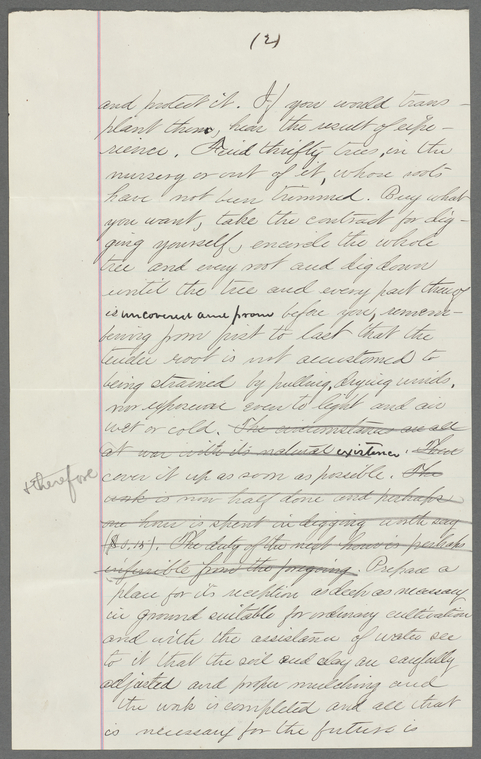 (2)
and protect it. If you would trans-
plant them, hear the result of expe-
rience. Find thrifty trees, in the
nursery or out of it, whose roots
have not been trimmed. Buy what
you want, take the contract for dig-
ging yourself, encircle the whole
tree and every root and dig down
until the tree and every part thereof
is uncovered and prone before you, remem-
bering from first to last that the
tender root is not accustomed to
being strained by pulling, drying winds,
nor exposure even to light and air
wet or cold. The circumstances are all
at war with its natural existence.
& therefore
cover it up as soon as possible. The
work is now half done and perhaps
one hour is spent in digging worth say
($0.15). The duty of the next hour is perhaps
inferrible from the foregoing. Prepare a
place for its reception as deep as necessary
in ground suitable for ordinary cultivation
and with the assistance of water see
to it that the soil and clay are carefully
adjusted and proper mulching and
the work is completed and all that
is necessary for the future is